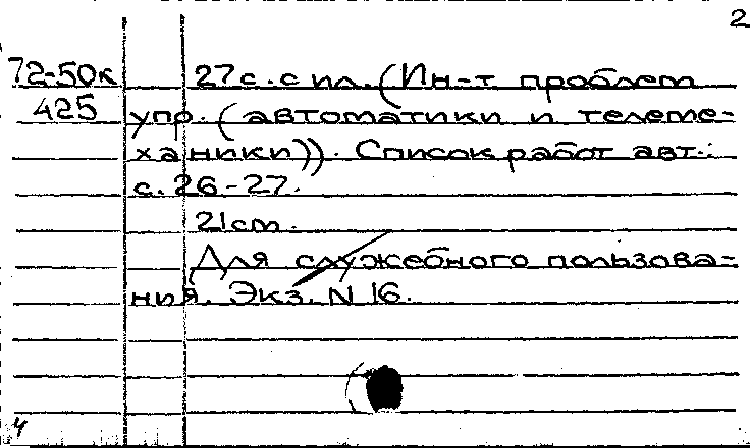 2
72-50к 27 с. с ил. (Ин-т проблем
425 упр. (автоматики и телеме-
ханики)). Список работ авт.:
с. 26-27.
21 см.
Для служебного пользова-
ния. Экз. N 16.
4